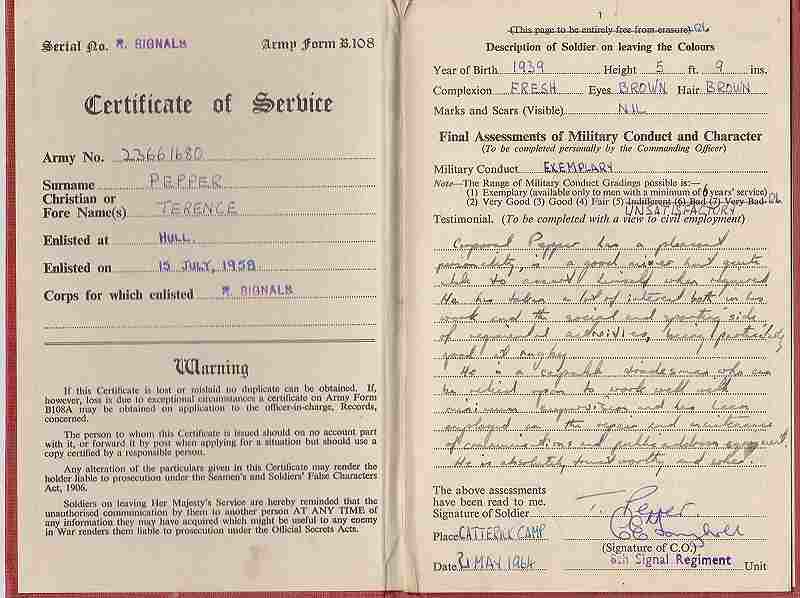 Serial No. R. SIGNALS Army Form B.108
Certificate of Service
Army No. 23661680
Surname PEPPER
Christian or
Fore Name(s) TERENCE
Enlisted at HULL.
Enlisted on 15 JULY, 1958
Corps for which enlisted R. SIGNALS
Warning
If this Certificate is lost or mislaid no duplicate can be obtained. If,
however, loss is due to exceptional circumstances a certificate on Army Form
B108A may be obtained on application to the officer-in-charge, Records,
concerned.
The person to whom this Certificate is issued should on no account part
with it, or forward it by post when applying for a situation but should use a
copy certified by a responsible person.
Any alteration of the particulars given in this Certificate may render the
holder liable to prosecution under the Seamen's and Soldiers' False Characters
Act, 1906.
Soldiers on leaving Her Majesty's Service are hereby reminded that the
unauthorised communication by them to another person AT ANY TIME of
any information they may have acquired which might be useful to any enemy
in War renders them liable to prosecution under the Official Secrets Acts.
1
(This page to be entirely free from erasure)
Description of Soldier on leaving the Colours
Year of Birth 1939 Height 5 ft. 9 ins.
Complexion FRESH Eyes BROWN Hair BROWN
Marks and Scars (Visible) NIL
Final Assessments of Military Conduct and Character
(To be completed personally by the Commanding Officer)
Military Conduct EXEMPLARY
Note—The Range of Military Conduct Gradings possible is:—
(1) Exemplary (available only to men with a minimum of 6 years' service)
(2) Very Good (3) Good (4) Fair (5) Indifferent (6) Bad (7) Very Bad
UNSATISFACTORY
Testimonial. (To be completed with a view to civil employment)
Corporal Pepper has a pleasant
personality, is a good mixer but quite
able to assert himself when required
He has taken a lot of interest both in his
work and the social and sporting side
of regimental activities, being particularly
good at rugby
He is a capable tradesman who can
be relied upon to work well with
minimum supervision and has been
employed on the repair and maintenance
of communications and public address equipment.
He is absolutely trustworthy and sober.
The above assessments
have been read to me.
Signature of Soldier T. Pepper
Place CATTERICK CAMP
(Signature of C.O.)
Date 21 MAY 1964 6th Signal Regiment Unit